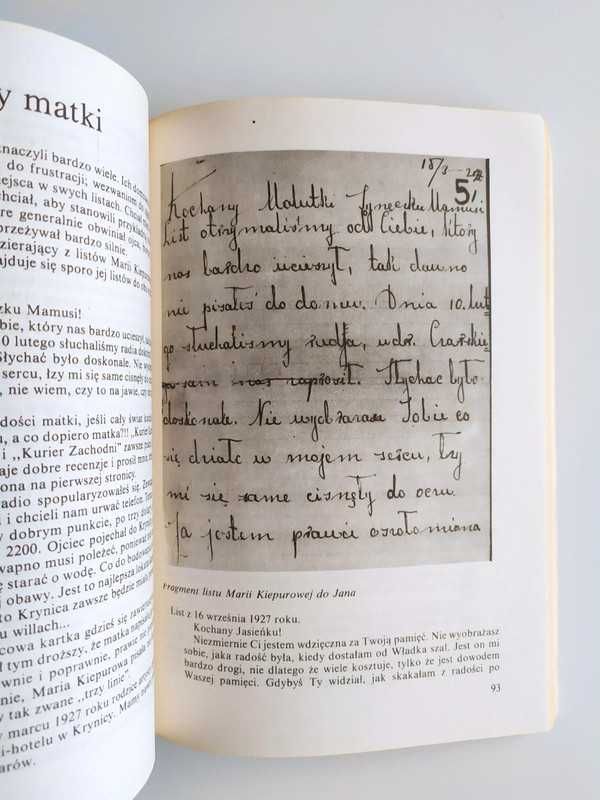 y matki
znaczyli bardzo wiele. Ich
do frustracji; wezwaniom do
ejsca w swych listach.
chciał, aby stanowili
re generalnie obwiniał ojca,
orzeżywał bardzo silnie.
zierający z listów Marii
ajduje się sporo jej listów do
zku Mamusi!
bie, który nas bardzo
0 lutego słuchaliśmy radia
Słychać było doskonale. Nie
sercu, łzy mi się same cisnęły do
, nie wiem, czy to na jawie, czy
dości matki, jeśli cały świat
, a co dopiero matka?!! „Kurier
i „Kurier Zachodni” zawsze
aje dobre recenzje i prosił
ona na pierwszej stronicy.
radio spopularyzowałeś się.
i chcieli nam urwać telefon.
y dobrym punkcie, po trzy
2200. Ojciec pojechał do
wapno musi poleżeć, ponieważ
ę starać o wodę. Co do
j obawy. Jest to najlepsza
to Krynica zawsze będzie miała
u willach...
cowa kartka gdzieś się
ł tym droższy, że matka
wnie i poprawnie, prawie
nie, Maria Kiepurowa pisała
y tak zwane „trzy linie”.
y marcu 1927 roku rodzice
i-hotelu w Krynicy. Mamy
arów.
18/3
5
Kochany Malutki Syneczku Mamusi
List otrzymaliśmy od Ciebie, który
nas bardzo ucieszył, tak dawno
nie pisałeś do domu. Dnia 10. lut
go słuchaliśmy radja,
sam nas zaprosił. Słychać było
doskonale. Nie wyobrażasz Sobie co
się działo w mojem sercu, łzy
mi się same cisnęły do oczu.
Ja jestem prawie oszołomiona
Fragment listu Marii Kiepurowej do Jana
List z 16 września 1927 roku.
Kochany Jasieńku!
Niezmiernie Ci jestem wdzięczna za Twoją pamięć. Nie wyobrażasz
sobie, jaka radość była, kiedy dostałam od Władka szal. Jest on mi
bardzo drogi, nie dlatego że wiele kosztuje, tylko że jest dowodem
Waszej pamięci. Gdybyś Ty widział, jak skakałam z radości po
93